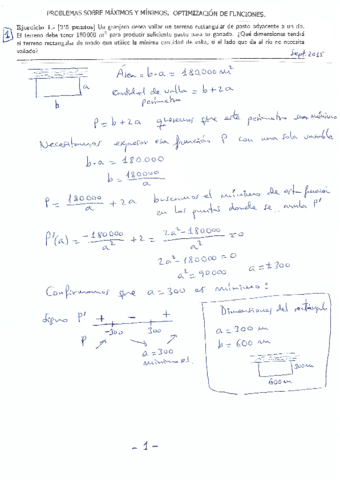 PROBLEMAS SOBRE MÁXIMOS Y MÍNIMOS, OPTIMIZACIÓN DE FUNCIONES.
1
Ejercicio 1.- [2'5 puntos] Un granjero desea vallar un terreno rectangular de pasto adyacente a un río.
El terreno debe tener 180000 m² para producir suficiente pasto para su ganado. ¿Qué dimensiones tendrá
el terreno rectangular de modo que utilice la mínima cantidad de valla, si el lado que da al río no necesita
vallado?
Sept 2015
a
b
Área = b·a = 180.000 m²
Cantidad de valla = b+2a
perímetro
P = b+2a queremos que este perímetro sea mínimo
Necesitamos expresar esa función P con una sola variable
b·a = 180.000
b = 180000/a
P = 180000/a + 2a buscamos el mínimo de esta función
en los puntos donde se anula P'
P'(a) = -180000/a² + 2 = 2a²-180000/a² = 0
2a²-180000 = 0
a² = 90000 a = ±300
Confirmamos que a = 300 es mínimo:
signo P' + - +
-300 300
P
a = 300
mínimo rel.
Dimensiones del rectángulo
a = 300 m
b = 600 m
300 m
600 m
-1-